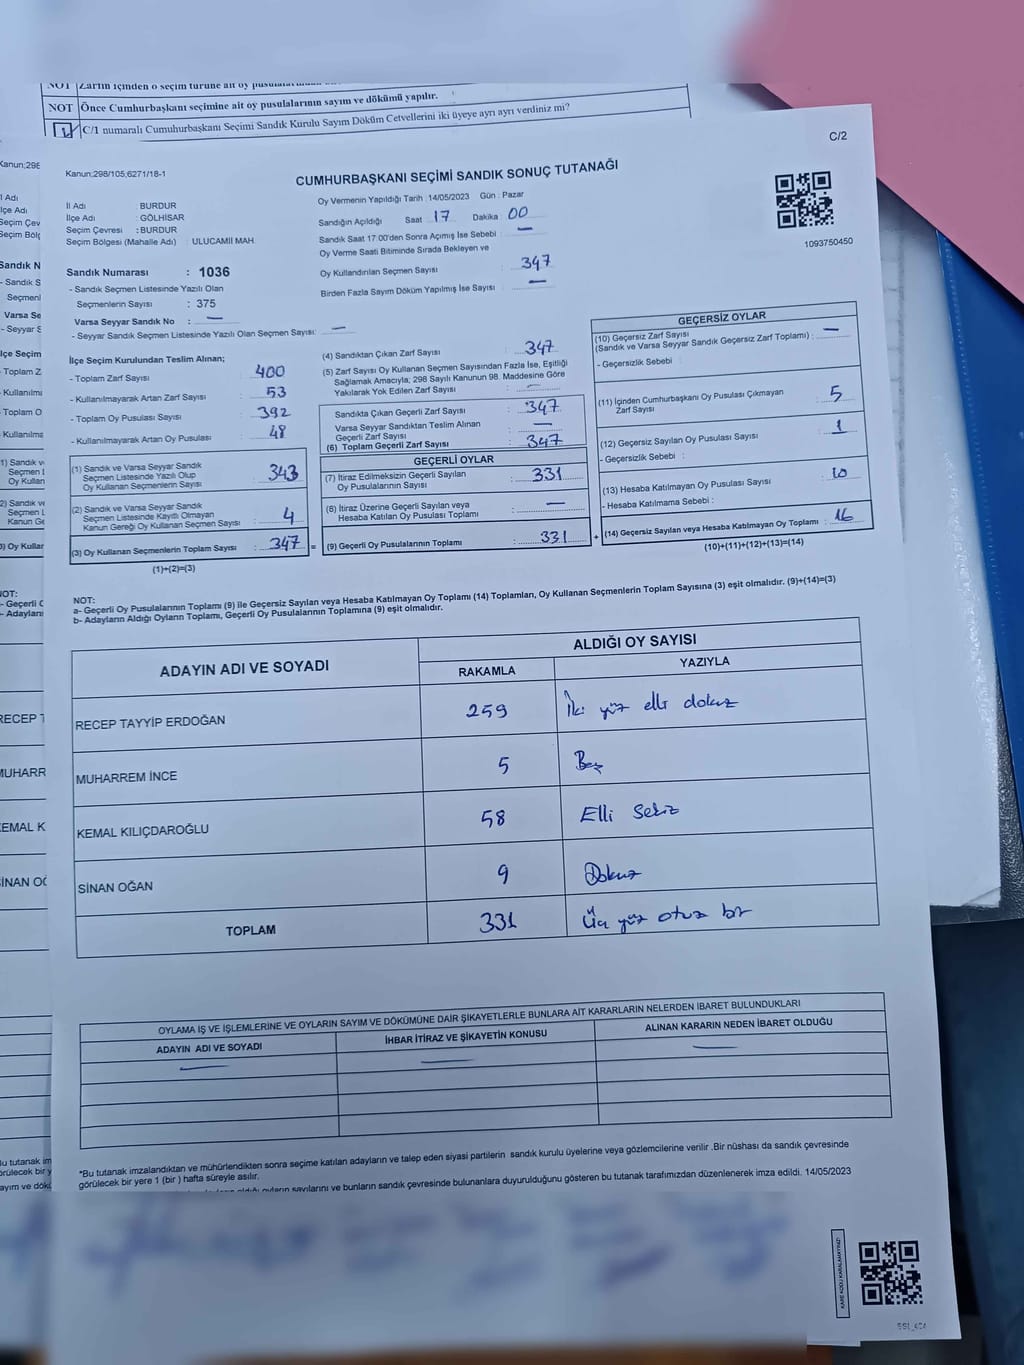 NOT Zarfın içinden o seçim türüne ait oy
NOT Önce Cumhurbaşkanı seçimine ait oy pusulalarının sayım ve dökümü yapılır.
1 C/1 numaralı Cumuhurbaşkanı Seçimi Sandık Kurulu Sayım Döküm Cetvellerini iki üyeye ayrı ayrı verdiniz mi?
C/2
Kanun:298/105;6271/18-1
CUMHURBAŞKANI SEÇİMİ SANDIK SONUÇ TUTANAĞI
İl Adı : BURDUR
İlçe Adı : GÖLHİSAR
Seçim Çevresi : BURDUR
Seçim Bölgesi (Mahalle Adı) : ULUCAMİİ MAH.
Oy Vermenin Yapıldığı Tarih : 14/05/2023 Gün : Pazar
Sandığın Açıldığı Saat 17 Dakika 00
Sandık Saat 17:00'den Sonra Açımış İse Sebebi : —
Oy Verme Saati Bitiminde Sırada Bekleyen ve
Oy Kullandırılan Seçmen Sayısı : 347
Birden Fazla Sayım Döküm Yapılmış İse Sayısı : —
1093750450
Sandık Numarası : 1036
- Sandık Seçmen Listesinde Yazılı Olan
Seçmenlerin Sayısı : 375
Varsa Seyyar Sandık No : —
- Seyyar Sandık Seçmen Listesinde Yazılı Olan Seçmen Sayısı: —
İlçe Seçim Kurulundan Teslim Alınan;
- Toplam Zarf Sayısı : 400
- Kullanılmayarak Artan Zarf Sayısı : 53
- Toplam Oy Pusulası Sayısı : 392
- Kullanılmayarak Artan Oy Pusulası : 48
(1) Sandık ve Varsa Seyyar Sandık
Seçmen Listesinde Yazılı Olup
Oy Kullanan Seçmenlerin Sayısı : 343
(2) Sandık ve Varsa Seyyar Sandık
Seçmen Listesinde Kayıtlı Olmayan
Kanun Gereği Oy Kullanan Seçmen Sayısı : 4
(3) Oy Kullanan Seçmenlerin Toplam Sayısı : 347 =
(1)+(2)=(3)
(4) Sandıktan Çıkan Zarf Sayısı : 347
(5) Zarf Sayısı Oy Kullanan Seçmen Sayısından Fazla İse, Eşitliği
Sağlamak Amacıyla; 298 Sayılı Kanunun 98. Maddesine Göre
Yakılarak Yok Edilen Zarf Sayısı : —
Sandıkta Çıkan Geçerli Zarf Sayısı : 347
Varsa Seyyar Sandıktan Teslim Alınan
Geçerli Zarf Sayısı : —
(6) Toplam Geçerli Zarf Sayısı : 347
GEÇERLİ OYLAR
(7) İtiraz Edilmeksizin Geçerli Sayılan
Oy Pusulalarının Sayısı : 331
(8) İtiraz Üzerine Geçerli Sayılan veya
Hesaba Katılan Oy Pusulası Toplamı : —
(9) Geçerli Oy Pusulalarının Toplamı : 331 +
GEÇERSİZ OYLAR
(10) Geçersiz Zarf Sayısı
(Sandık ve Varsa Seyyar Sandık Geçersiz Zarf Toplamı) : —
- Geçersizlik Sebebi :
(11) İçinden Cumhurbaşkanı Oy Pusulası Çıkmayan
Zarf Sayısı : 5
(12) Geçersiz Sayılan Oy Pusulası Sayısı : 1
- Geçersizlik Sebebi :
(13) Hesaba Katılmayan Oy Pusulası Sayısı : 10
- Hesaba Katılmama Sebebi :
(14) Geçersiz Sayılan veya Hesaba Katılmayan Oy Toplamı : 16
(10)+(11)+(12)+(13)=(14)
NOT:
a- Geçerli Oy Pusulalarının Toplamı (9) ile Geçersiz Sayılan veya Hesaba Katılmayan Oy Toplamı (14) Toplamları, Oy Kullanan Seçmenlerin Toplam Sayısına (3) eşit olmalıdır. (9)+(14)=(3)
b- Adayların Aldığı Oyların Toplamı, Geçerli Oy Pusulalarının Toplamına (9) eşit olmalıdır.
ADAYIN ADI VE SOYADI ALDIĞI OY SAYISI
RAKAMLA YAZIYLA
RECEP TAYYİP ERDOĞAN 259 İki yüz elli dokuz
MUHARREM İNCE 5 Beş
KEMAL KILIÇDAROĞLU 58 Elli Sekiz
SİNAN OĞAN 9 Dokuz
TOPLAM 331 Üç yüz otuz bir
OYLAMA İŞ VE İŞLEMLERİNE VE OYLARIN SAYIM VE DÖKÜMÜNE DAİR ŞİKAYETLERLE BUNLARA AİT KARARLARIN NELERDEN İBARET BULUNDUKLARI
ADAYIN ADI VE SOYADI İHBAR İTİRAZ VE ŞİKAYETİN KONUSU ALINAN KARARIN NEDEN İBARET OLDUĞU
— — —
*Bu tutanak imzalandıktan ve mühürlendikten sonra seçime katılan adayların ve talep eden siyasi partilerin sandık kurulu üyelerine veya gözlemcilerine verilir .Bir nüshası da sandık çevresinde
görülecek bir yere 1 (bir ) hafta süreyle asılır.
aldığı oyların sayılarını ve bunların sandık çevresinde bulunanlara duyurulduğunu gösteren bu tutanak tarafımızdan düzenlenerek imza edildi. 14/05/2023
KARE KODU KARALAMAYINIZ!